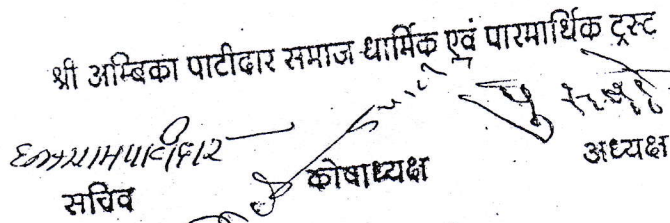 श्री अम्बिका पाटीदार समाज धार्मिक एवं पारमार्थिक ट्रस्ट
सचिव
कोषाध्यक्ष
अध्यक्ष